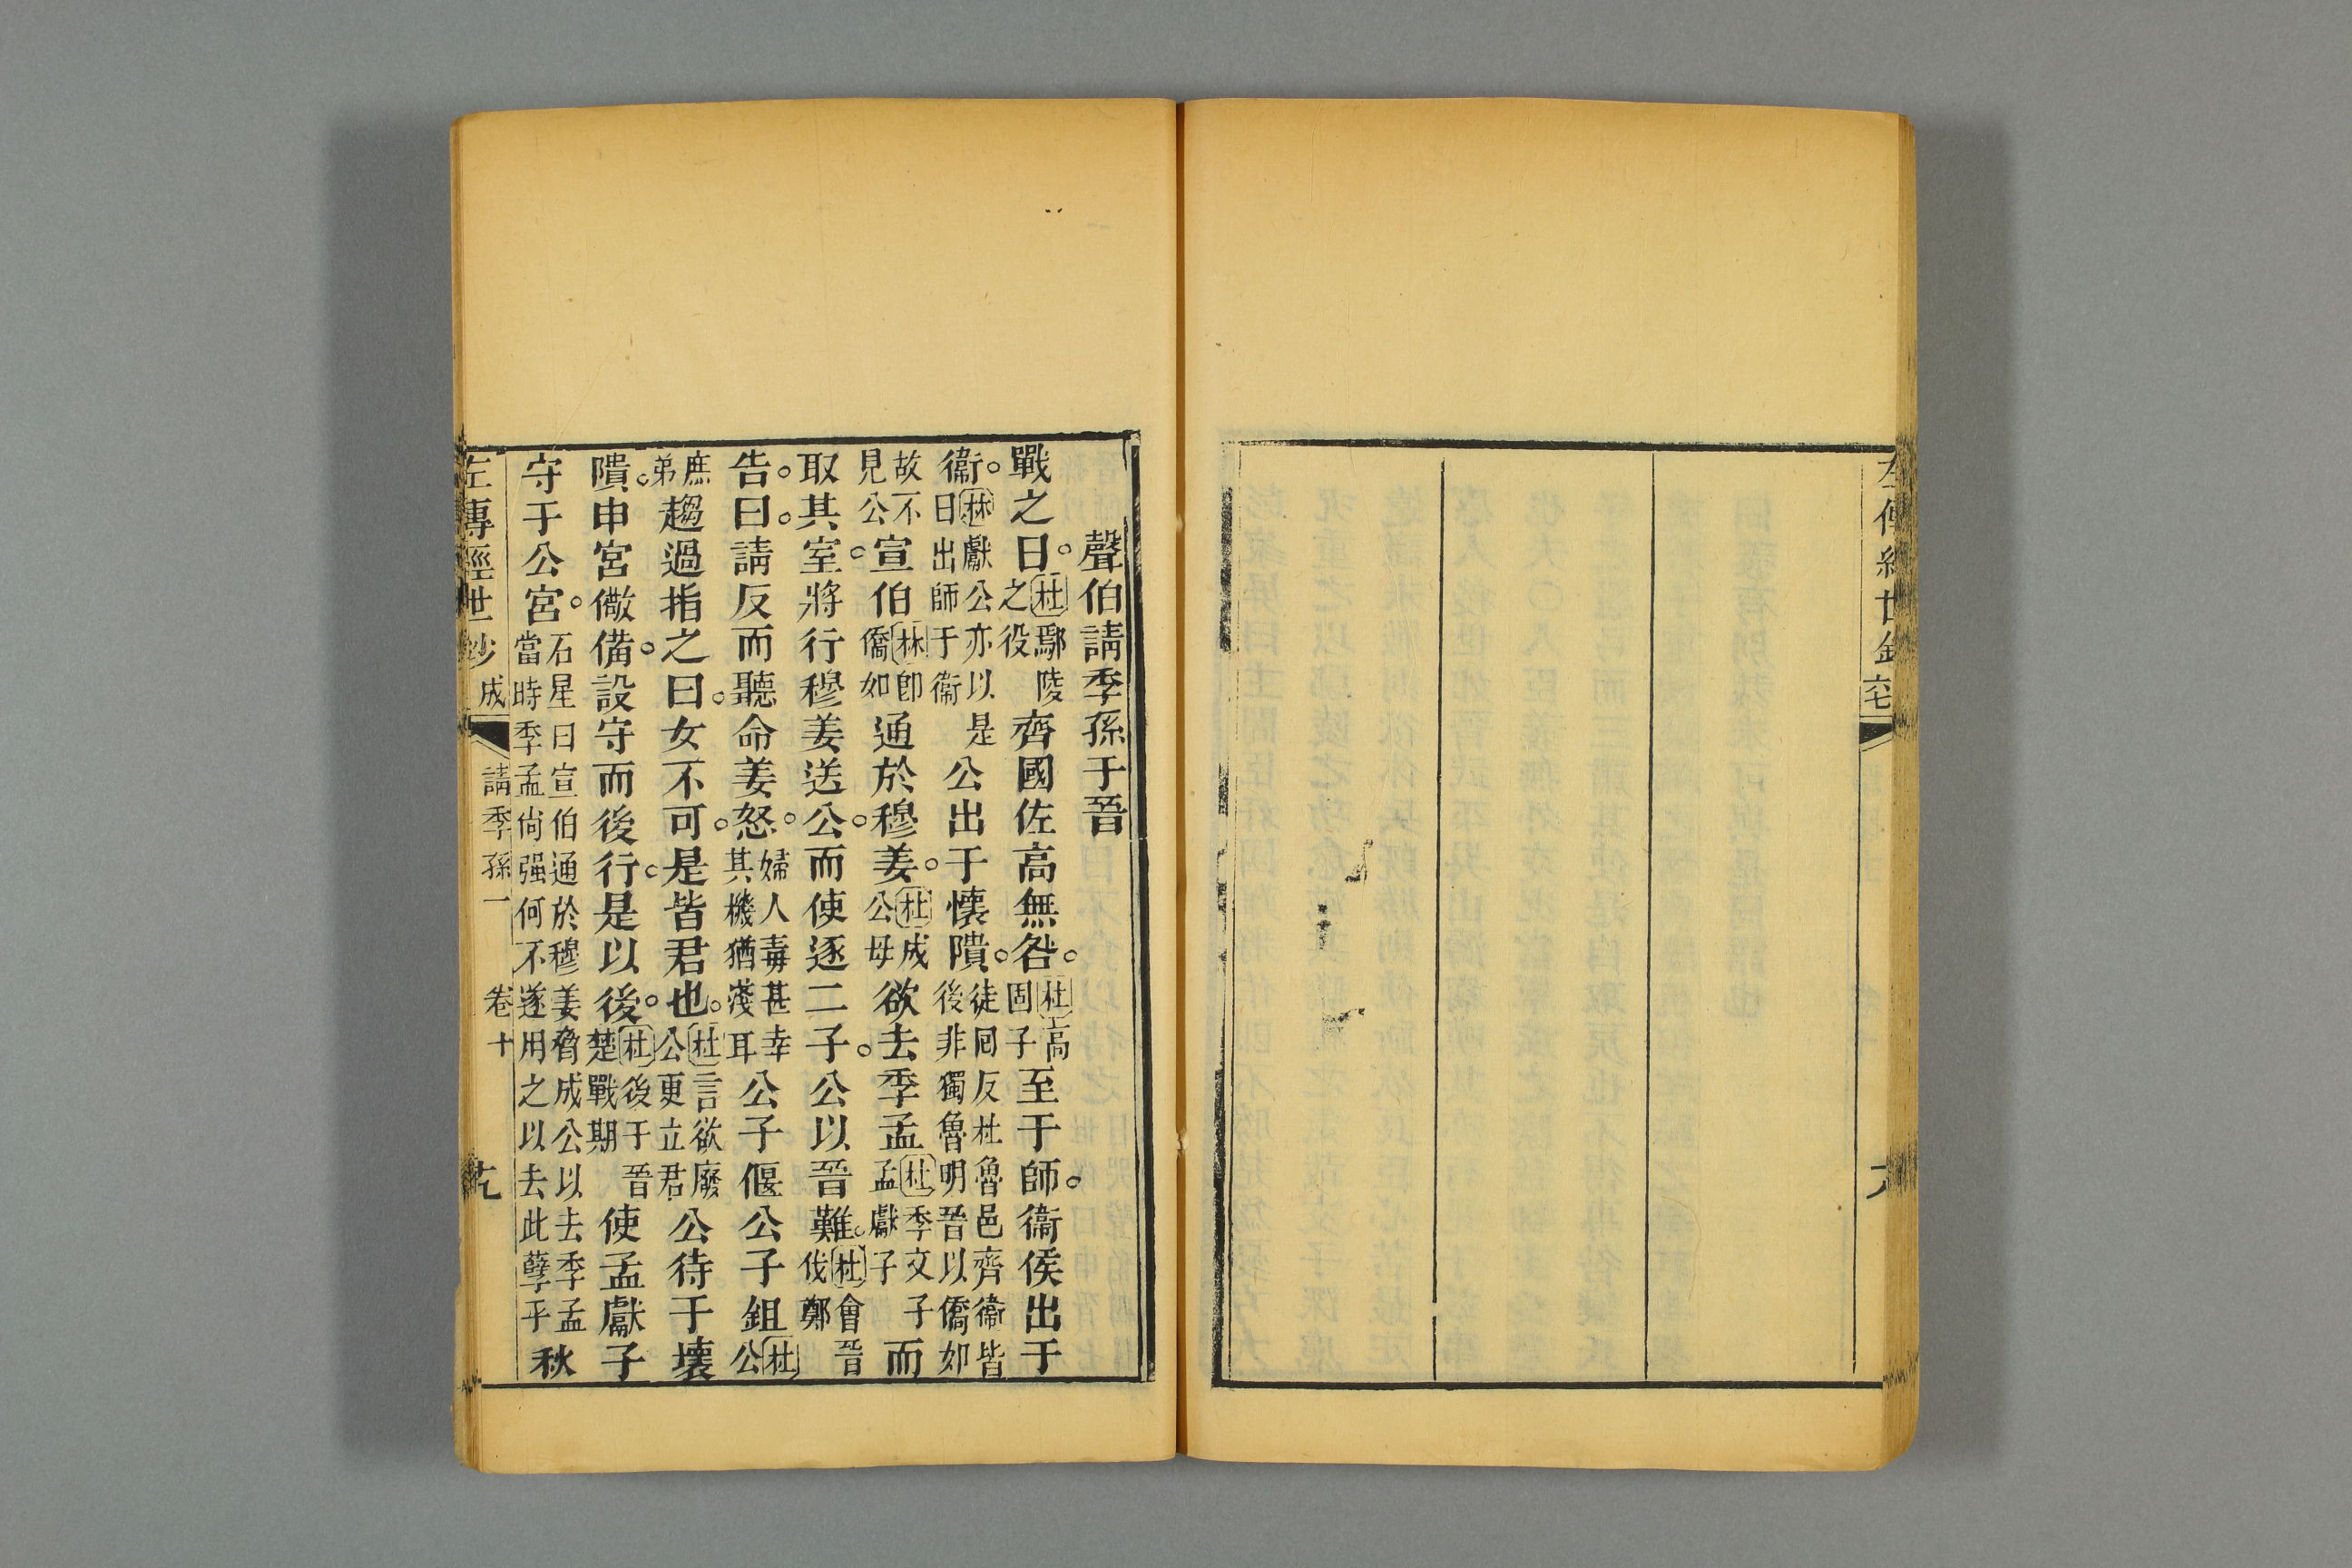 聲伯請季孫于晉
戰之日。杜鄢陵之役齊國佐高無咎。杜高固子至于師。衞侯出于
衞。林獻公亦以是日出師于衞公出于懷隤。徒回反杜魯邑齊衞皆後非獨魯明晉以僑如
故不見公。宣伯林卽僑如通於穆姜。杜成公母欲去季孟杜季文子孟獻子而
取其室。將行穆姜送公。而使逐二子。公以晉難。杜會晉伐鄭
告。曰。請反而聽命姜怒。婦人毒甚幸其機猶淺耳公子偃公子鉏杜公
庶弟。趨過指之曰。女不可。是皆君也。杜言欲廢公更立君公待于壞
隤。申宮儆備。設守而後行。是以後。杜後于晉楚戰期使孟獻子
守于公宮。石星曰宣伯通於穆姜脅成公以去季孟當時季孟尙强何不遂用之以去此孽乎秋
左傳經世鈔 成 請季孫一 卷十